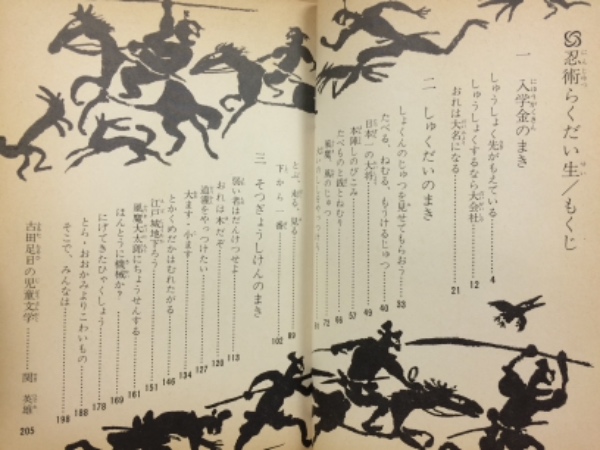 忍術らくだい生/もくじ
一 入学金のまき
しゅうしょく先がもえている……4
しゅうしょくするなら大会社……12
おれは大名になる……21
二 しゅくだいのまき
しょくんのじゅつを見せてもらおう……33
たべる、ねむる、もうけるじゅつ……40
日本一の大将……49
本陣しのびこみ……57
たべものと銭とねむり……66
風魔、風のじゅつ……72
とぶ、走る、見る……89
下から一番……102
三 そつぎょうしけんのまき
弱い者はだんけつせよ……113
おれは木だぞ……120
道灌をやっつけたい……127
大ます・小ます……134
とかくめだかはむれたがる……146
江戸城地下ろう……151
風魔大太郎にちょうせんする……161
ほんとうに機械か?……169
にげてきたひゃくしょう……178
とら・おおかみよりこわいもの……188
そこで、みんなは……198
古田足日の児童文学……関 英雄
205